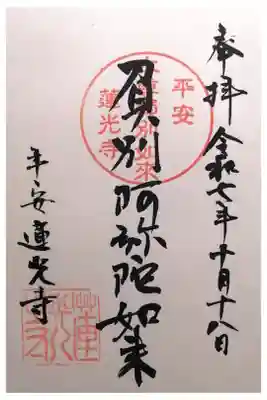 奉拝 令和七年十月十八日
負別阿弥陀如来
平安 蓮光寺
平安
蓮光寺